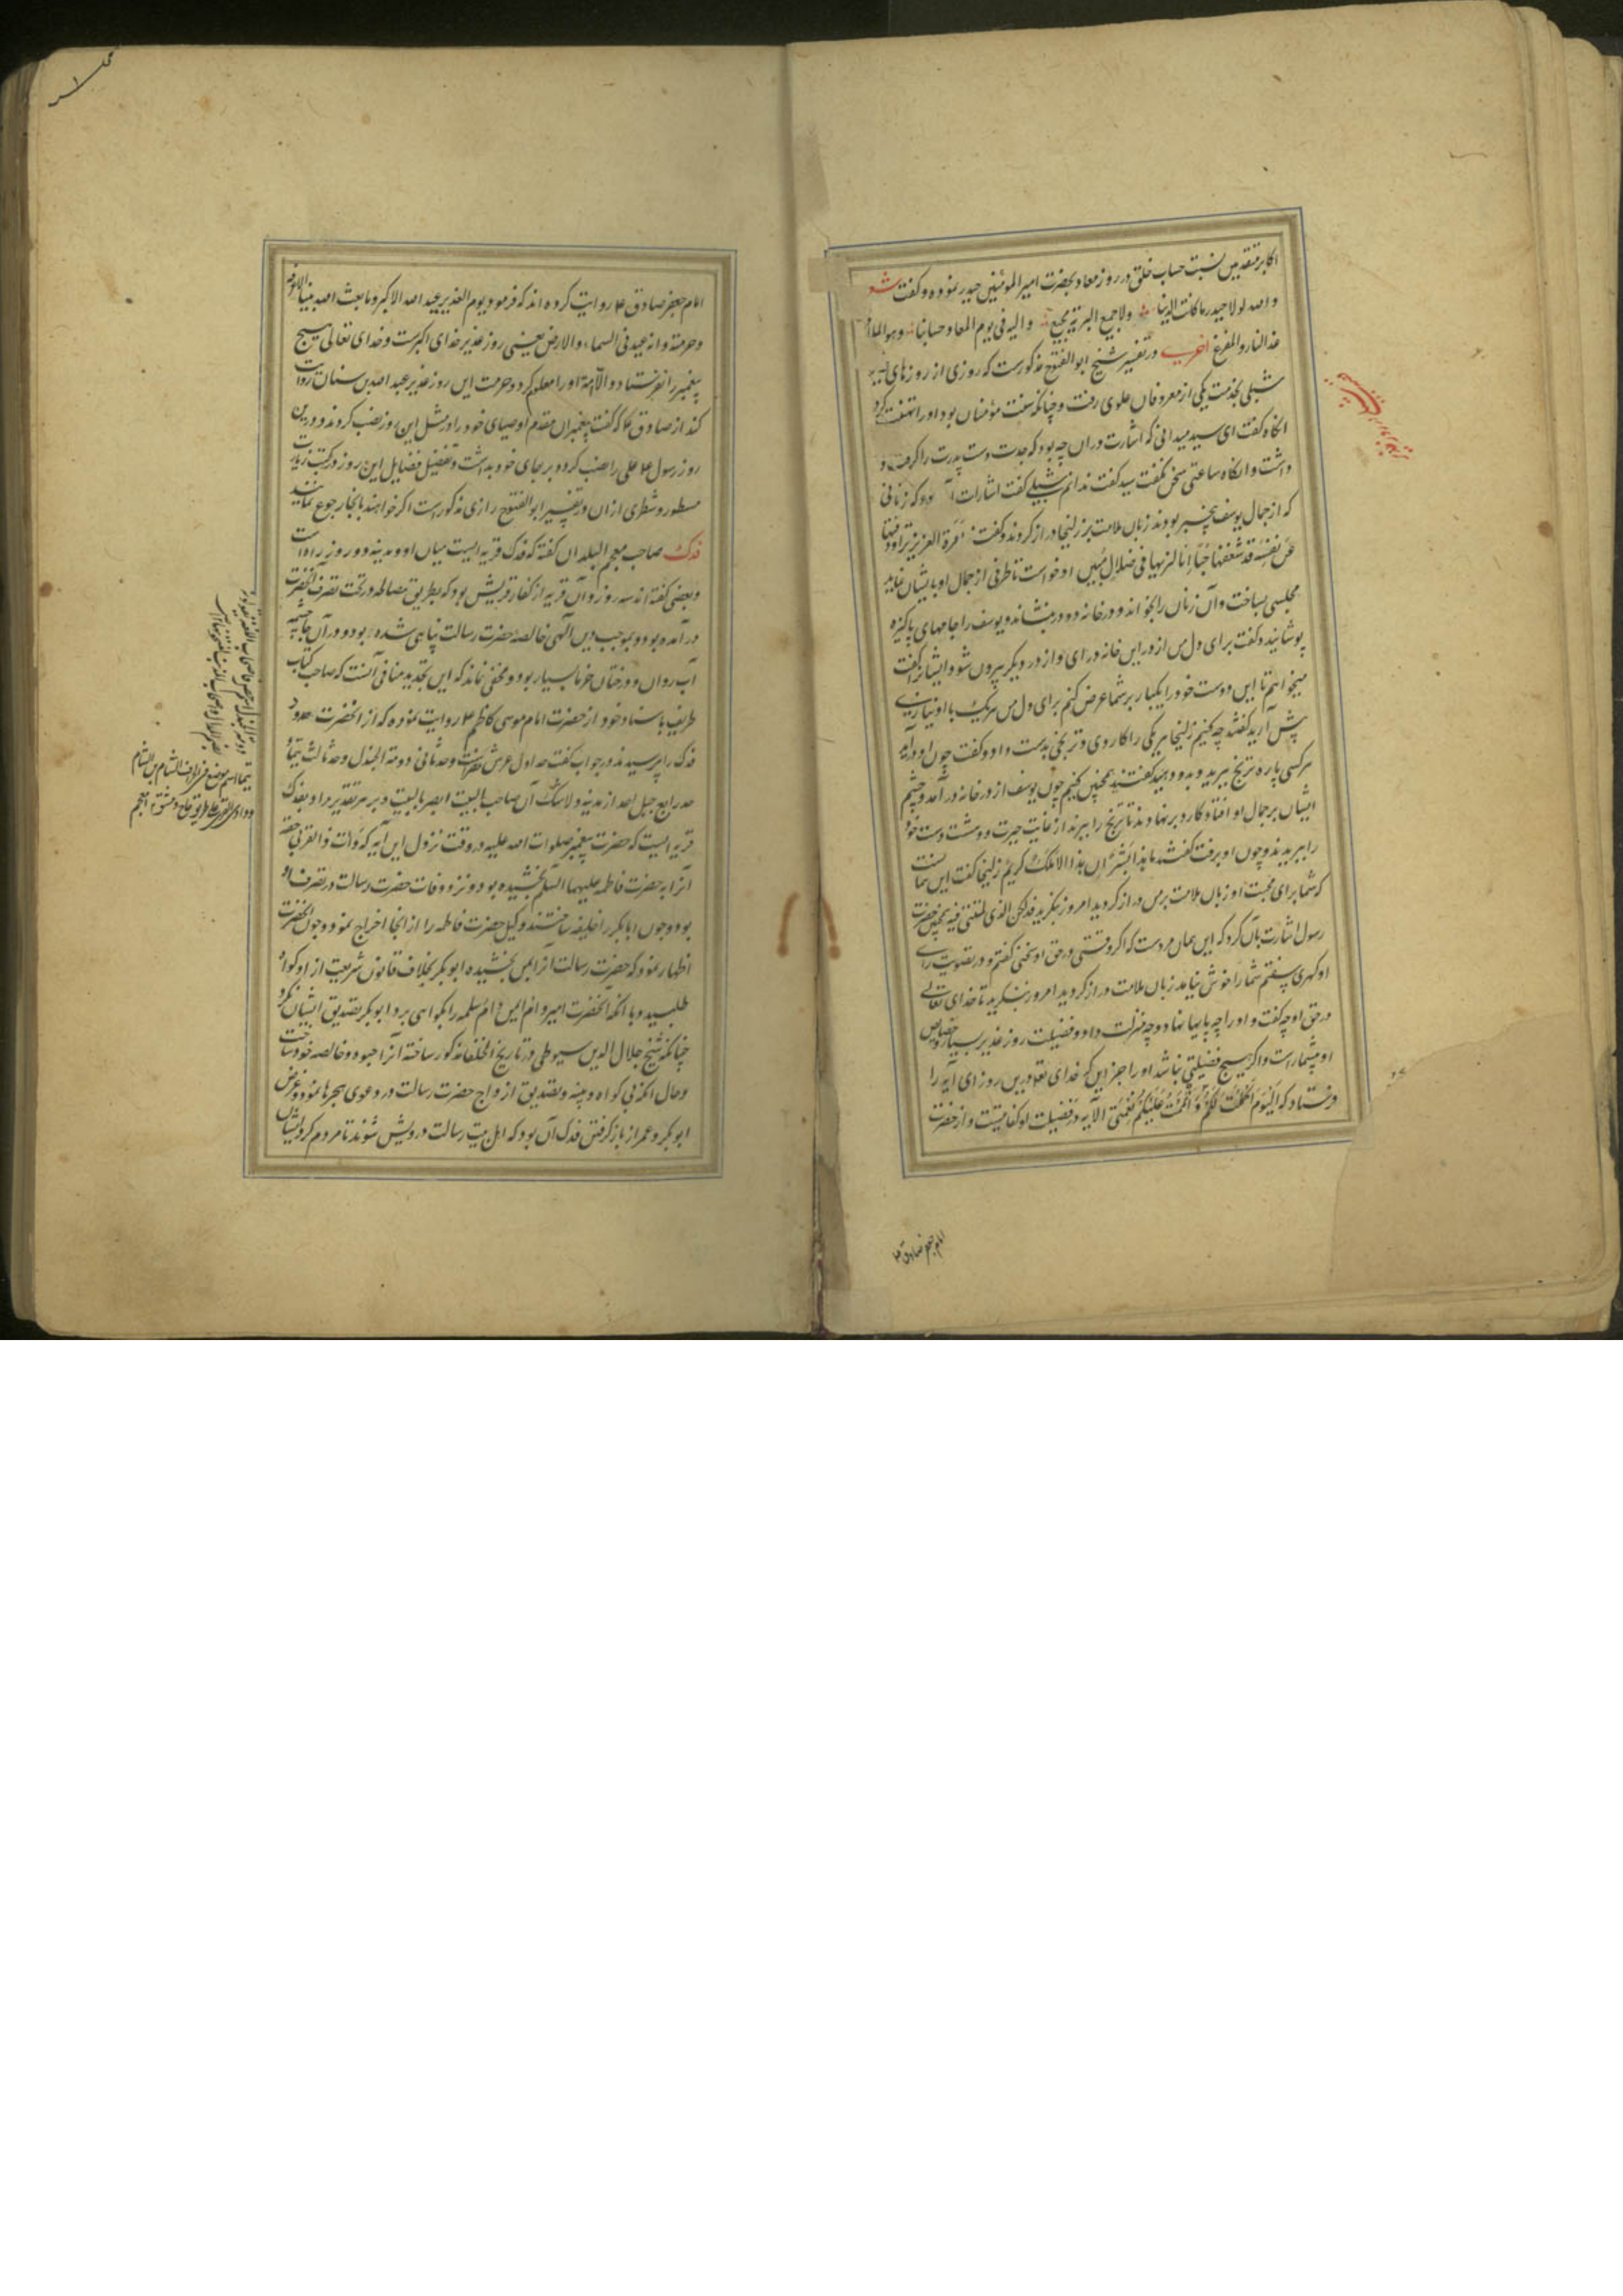 اکابر متقدمین نسبت حساب خلق در روز معاد بحضرت امیر المؤمنین حیدر نموده و گفت شعر
و الله لولا حیدر ما کانت الدنیا ولا جمع البریة مجمع و الیه فی یوم المعاد حسابنا وهو الملاذ
غدا لنا والمفزع اخری در تفسیر شیخ ابو الفتوح مذکورست که روزی از روزهای
شبلی بخدمت یکی از معروفان علوی رفت و چنانکه سنت مؤمنان بود او را تهنیت کرد
انکاه گفت ای سید میدانی که اشارت در ان چه بود که جدت دست پدرت را گرفت و
داشت و انکاه ساعتی سخن نگفت سید گفت ندانم شبلی گفت اشارات که زنانی
که از جمال یوسف بیخبر بودند زبان ملامت بر زلیخا دراز کردند و گفتند امرأة العزیز تراود فتیها
عن نفسه قد شغفها حبا انا لنریها فی ضلال مبین او خواست تا طرفی از جمال او بایشان نماید
مجلسی بساخت و آن زنان را بخواند و در خانه دو در بنشاند و یوسف را جامهای پاکیزه
پوشانید و گفت برای دل من از در این خانه در ای و از در دیگر بیرون شو و ایشانرا گفت
میخواهم تا این دوست خود را یکبار بر شما عرض کنم برای دل من هر یک با او نیازی
پیش آرید گفتند چه کنیم زلیخا هر یکی را کاردی و ترنجی بدست داد و گفت چون او در آید
هر کسی پاره ترنج ببرید و بدو دهید گفتند همچنین کنیم چون یوسف از در خانه در آمد و چشم
ایشان بر جمال او افتاد کارد بر نهادند تا ترنج را ببرند از غایت حیرت و دهشت دست خود
را ببریدند و چون او برفت گفتند ما هذا بشرا ان هذا الا ملک کریم زلیخا گفت این همانست
که شما برای محبت او زبان ملامت بر من دراز کردید امروز بنگرید فذلکن الذی لمتننی فیه همچنین حضرت
رسول اشارت بآن کرد که این همان مردست که اکر وقتی در حق او سخنی گفتم و در تصویب رای
او کهری سفتم شما را خوش نیامد زبان ملامت دراز کردید امروز بنگرید تا خدای تعالی
در حق او چه گفت و او را چه پایها نهاد و چه منزلت داد و فضیلت روز غدیر بسیار و خصایص
او بیشمارست و اگر هیچ فضیلتی نباشد او را جز این که خدای تعالی درین روز ای آیه را
فرستاد که الیوم اکملت لکم و اتممت علیکم نعمتی الآیه در فضیلت او کفایتست و از حضرت
امام جعفر صادق ع
امام جعفر صادق ع روایت کرده اند که فرمود یوم الغدیر عید الله الاکبر و ما بعث الله نبیا الا عرفه
و حرمته و انه عید فی السماء و الارض یعنی روز غدیر خدای اکبرست و خدای تعالی هیچ
پیغمبر را نفرستاد و الا انه او را معلوم کرد و حرمت این روز غدیر عبد الله بن سنان روایت
کند از صادق ع که گفت پیغمبران مقدم اوصیای خود را در مثل این روز نصب کردند و درین
روز رسول ع علی را نصب کرد و بر جای خود بداشت و تفضیل فضایل این روز در کتب زیارت
مسطور و شطری ازان در تفسیر ابو الفتوح رازی مذکور است اگر خواهند بانجا رجوع نمایند
فدک صاحب معجم البلدان گفته که فدک قریه ایست میان او و مدینه دو روزه راه است
و بعضی گفته اند سه روز و آن قریه از کفار قریش بود که بطریق مصالحه در تحت تصرف آنحضرت
در آمده بود و بموجب دین الهی خالصه حضرت رسالت پناهی شده بود و در آن جا چشمه
آب روان و درختان خرما بسیار بود و مخفی نماند که این تحدید منافی آنست که صاحب کتاب
طریف باسناد خود از حضرت امام موسی کاظم ع روایت نموده که از انحضرت حدود
فدک را پرسیدند در جواب گفت حد اول عرش مصر است و حد ثانی دومة الجندل و حد ثالث تیما
حد رابع جبل احد از مدینه و لا شک آن صاحب البیت ابصر بالبیت و بر هر تقدیر مراد بفدک
قریه ایست که حضرت پیغمبر صلوات الله علیه در وقت نزول این آیه که و آت ذا القربی حقه
آنرا به حضرت فاطمه علیها السلم بخشیده بود و نزد وفات حضرت رسالت در تصرف او
بود و چون ابابکر را خلیفه ساختند وکیل حضرت فاطمه را از انجا اخراج نمود و چون انحضرت
اظهار نمود که حضرت رسالت آنرا بمن بخشیده ابو بکر بخلاف قانون شریعت از او کواه
طلبید و با انکه انحضرت امیر و ام ایمن و ام سلمه را بکواهی برد ابو بکر تصدیق ایشان نکرد
چنانکه شیخ جلال الدین سیوطی در تاریخ الخلفا مذکور ساخته آنرا حبوه و خالصه خود ساخت
و حال انکه بی کواه و بینه و تصدیق ازواج حضرت رسالت در دعوی حجرها نمود و غرض
ابو بکر و عمر از باز گرفتن فدک آن بود که اهل بیت رسالت درویش شوند تا مردم کرد ایشان